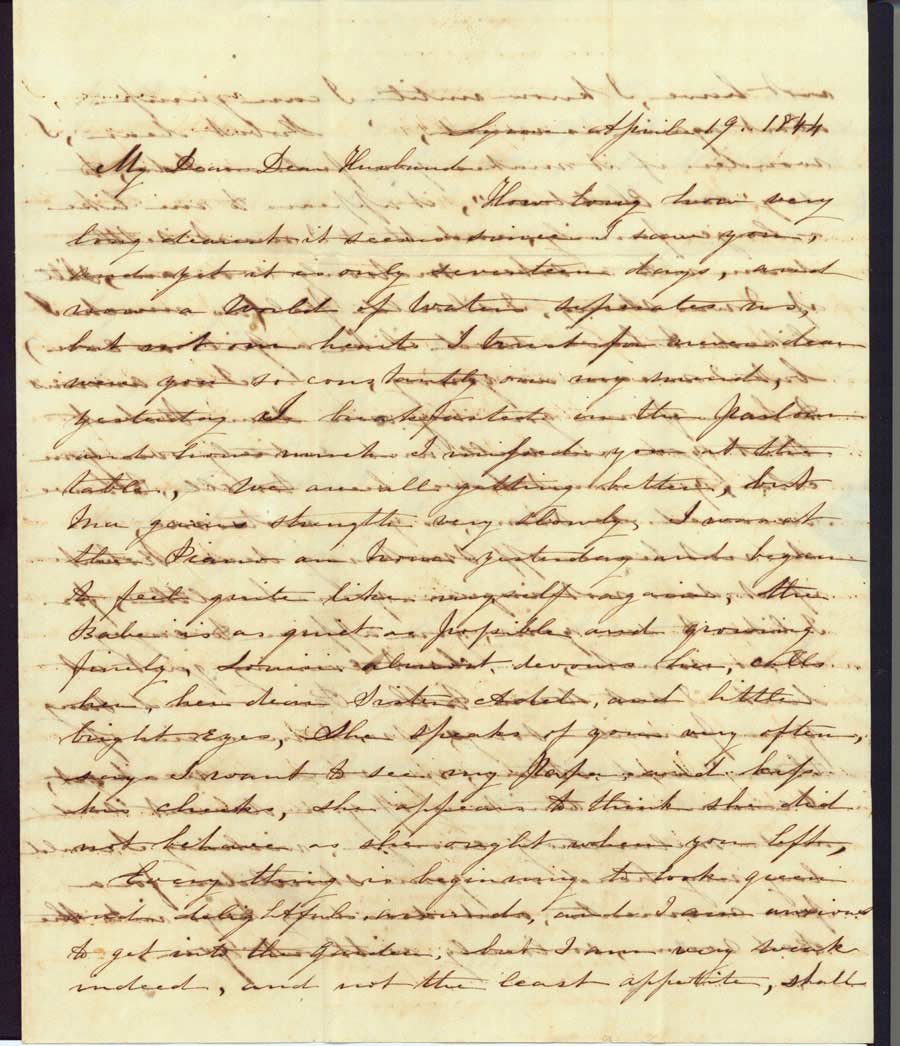 Lyme April 19. 1844
My Dear Dear Husband
How long how very
long dearest it seems since I saw you,
and yet it is only seventeen days, and
now a World of Water, seperates us,
but not our hearts I trust for never dear
were you so constantly on my mind,
yesterday I breakfasted in the Parlour
and how much I missed you at the
table, We are all getting better, but
Ma gains strength very slowly, I was at
the Piano an hour yesterday and began
to feel quite like myself again, the
Babe is as quiet as possible and growing
finely, Louisa almost devours her, calls
her, her dear Sister Adel, and little
bright Eyes, She speaks of you very often,
says I want to see my Papa, and kiss
his cheeks, she appears to think she did
not behave as she ought when you left,
Every thing is beginning to look green
and delightful around, and I am anxious
to get into the garden, but I am very weak
indeed, and not the least appetite, shall